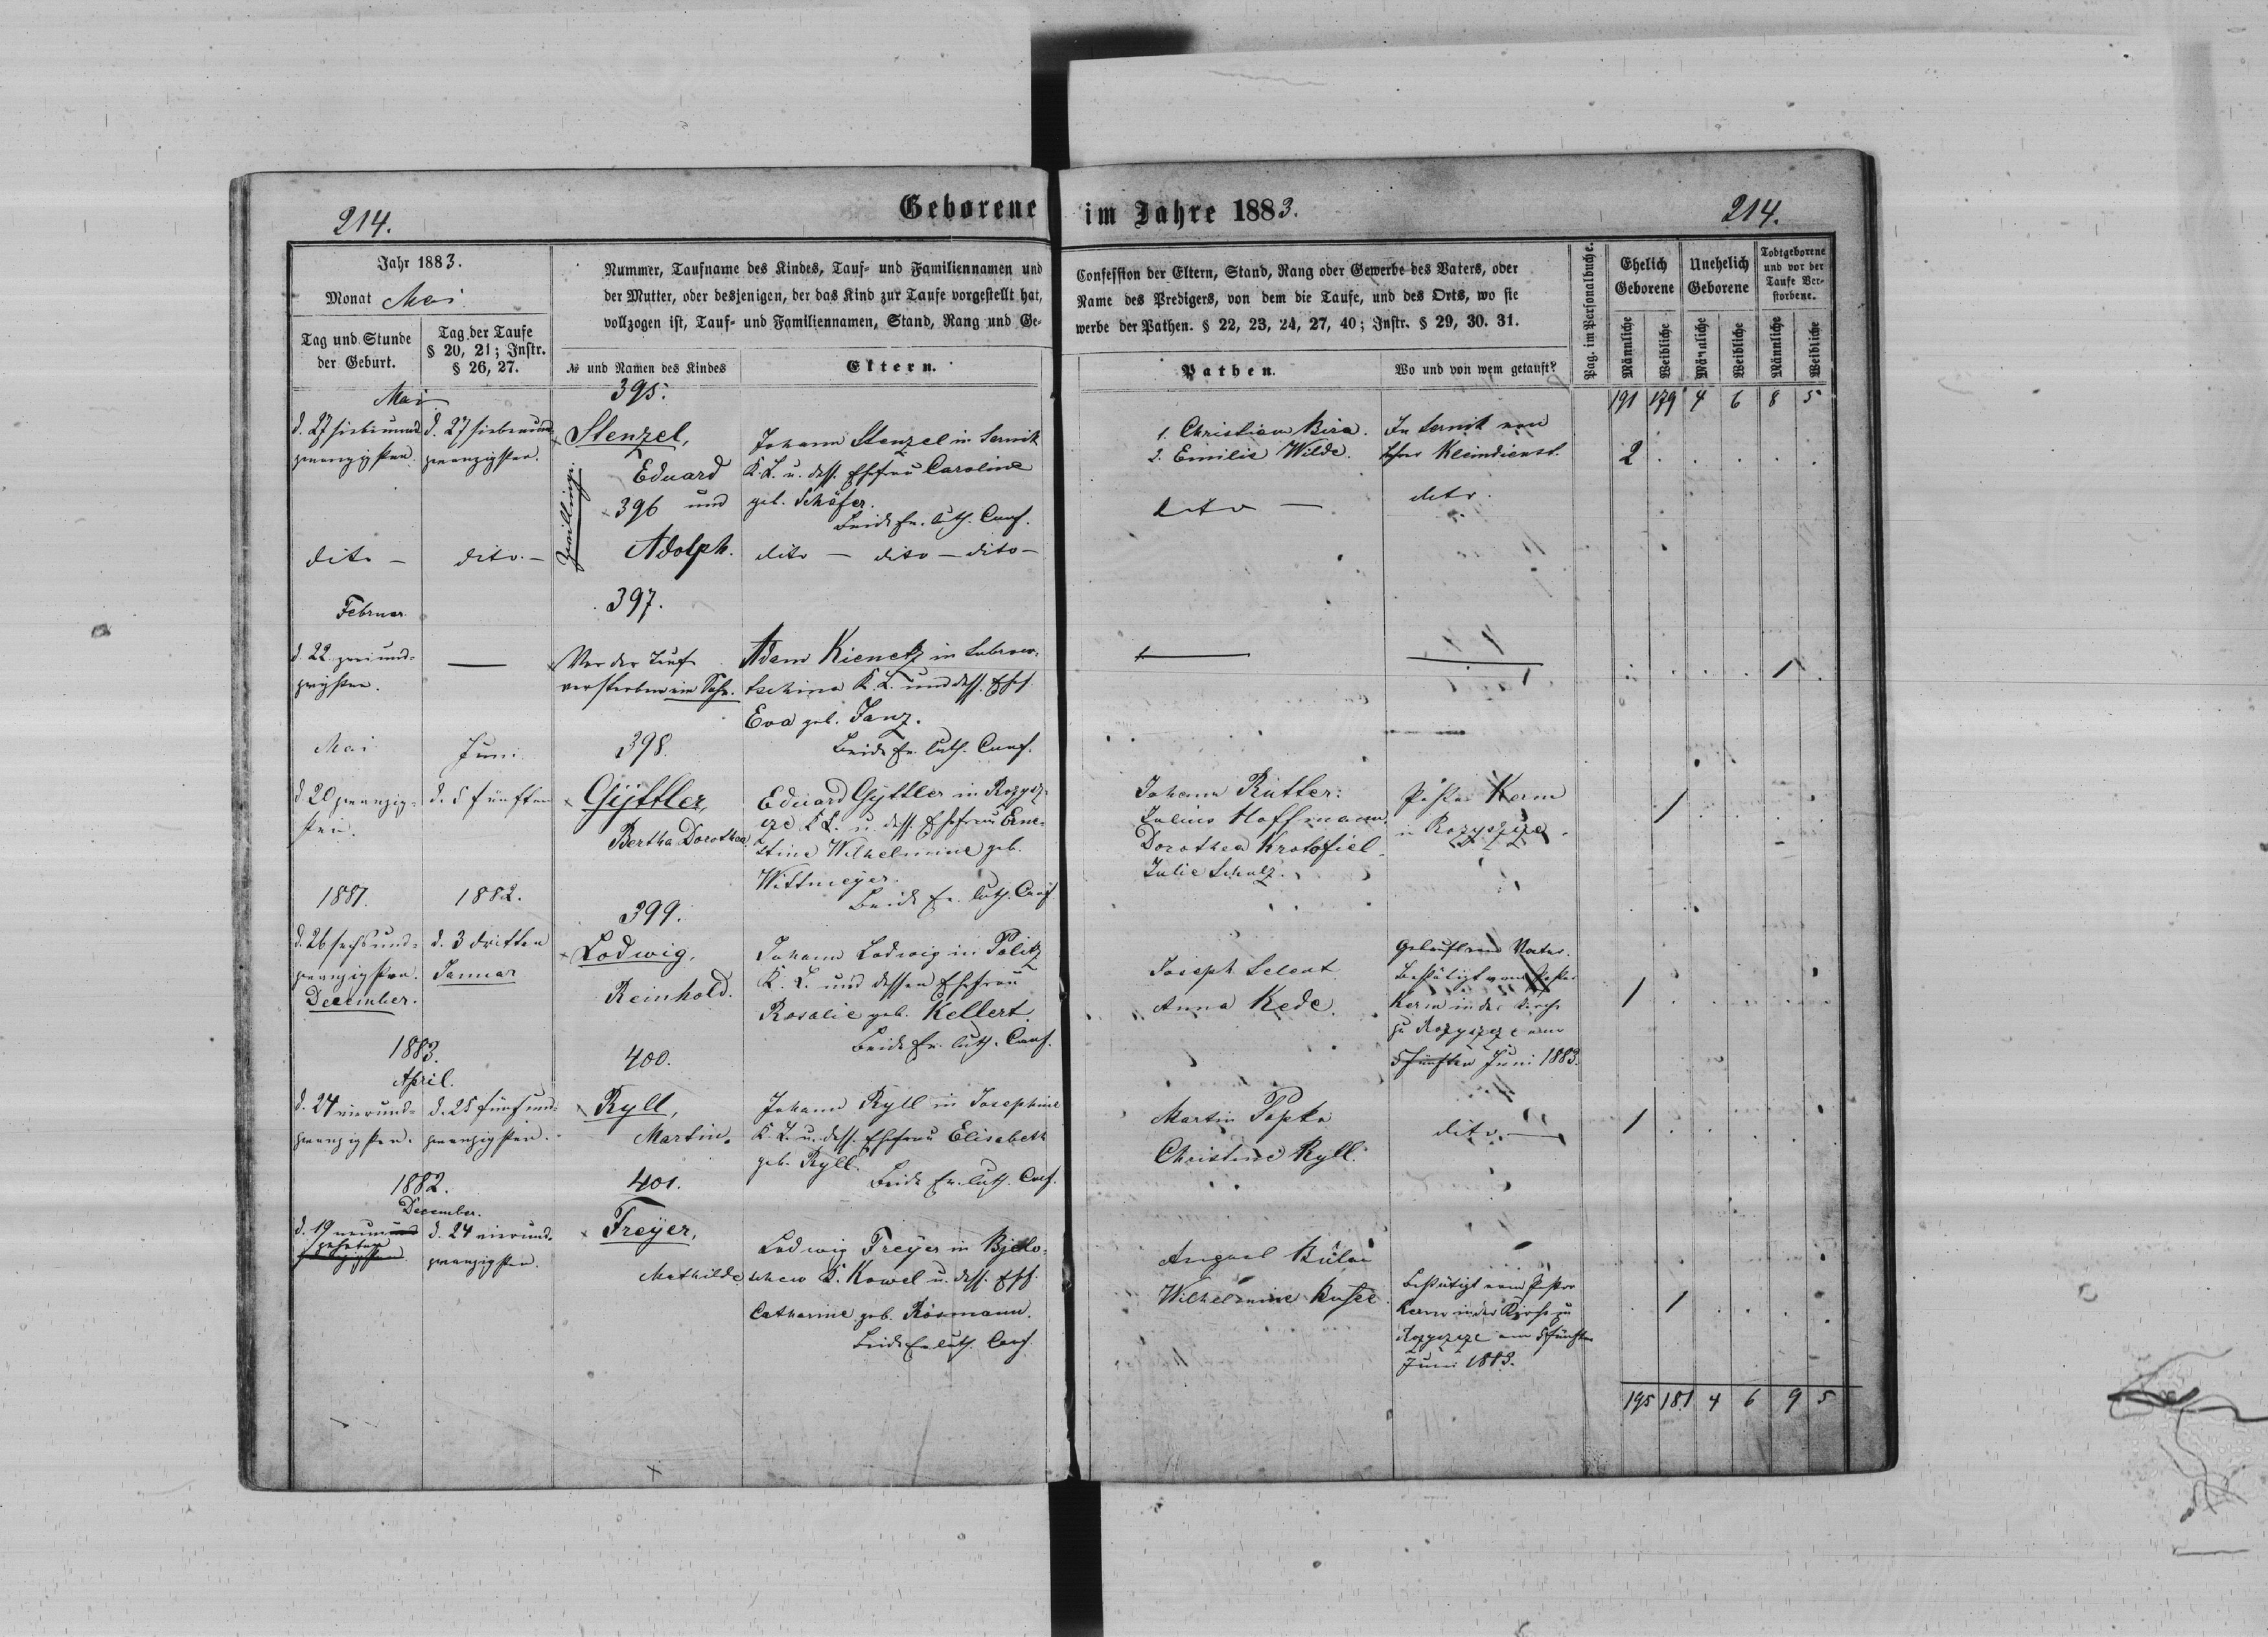 214.
Geborene im Jahre 1883.
214.
Jahr 1883.
Monat Mai
Tag und Stunde
der Geburt.
Tag der Taufe
§ 20, 21; Instr.
§ 26, 27.
Nummer, Taufname des Kindes, Tauf- und Familiennamen und
der Mutter, oder desjenigen, der das Kind zur Taufe vorgestellt hat,
vollzogen ist, Tauf- und Familiennamen, Stand, Rang und Ge-
№ und Namen des Kindes
Eltern.
Confession der Eltern, Stand, Rang oder Gewerbe des Vaters, oder
Name des Predigers, von dem die Taufe, und des Orts, wo sie
werbe der Pathen. § 22, 23, 24, 27, 40; Instr. § 29, 30. 31.
Pathen.
Wo und von wem getauft?
Pag. im Personalbuche.
Ehelich
Geborene
Unehelich
Geborene
Todtgeborene
und vor der
Taufe Ver-
storbene.
Männliche
Weibliche
Männliche
Weibliche
Männliche
Weibliche
191 179 4 6 8 5
Mai
d. 27 siebenund-
zwanzigsten.
d. 27 siebenund-
zwanzigsten.
395.
Stenzel,
Eduard
396 und
Adolph.
Zwillinge.
Johann Stenzel in Sernik
K. L. u. dess. Ehefrau Caroline
geb. Schäfer.
Beide Ev. luth. Conf.
dito — dito — dito —
1. Christian Bira.
2. Emilie Wilde.
dito —
In Sernik von
Lehrer Kleindienst.
dito.
2
dito —
dito. —
Februar
d. 22 zweiund-
zwzsten.
—
397.
Vor der Taufe
verstorben ein Sohn.
Adam Kienetz in Lubrow-
tschina K. L. und dess. Ehef.
Eva geb. Janz.
Beide Ev. luth. Conf.
1
Mai
d. 20 zwanzig-
sten.
Juni
d. 5 fünften
398.
Gyttler,
Bertha Dorothea
Eduard Gyttler in Rozysz-
cze K. L. u. dess. Ehefrau Erne-
stine Wilhelmine geb.
Wittmeyer.
Beide Ev. luth. Conf.
Johann Rutter:
Julius Hoffmann
Dorothea Krotofiel
Julie Schulz.
Pastor Kerm
in Rozyszcze.
1
1881.
d. 26 sechsund-
zwanzigsten.
December.
1882.
d. 3 dritten
Januar
399.
Lodwig,
Reinhold.
Johann Lodwig in Politz
K. L. und dessen Ehefrau
Rosalie geb. Kellert.
Beide Ev. luth. Conf.
Joseph Selent
Anna Rede.
Getauft vom Vater.
Bestätigt vom Pastor
Kerm in der Kirche
zu Rozyszcze am
5 fünften Juni 1883.
1
1883.
April.
d. 24 vierund-
zwanzigsten.
d. 25 fünfund-
zwanzigsten.
400.
Ryll,
Martin.
Johann Ryll in Josephine
K. L. u. dess. Ehefrau Elisabeth
geb. Ryll.
Beide Ev. luth. Conf.
Martin Popke
Christine Ryll.
dito. —
1
1882.
December.
d. 19 neunund
zehnten
zwanzigsten.
d. 24 vierund-
zwanzigsten.
401.
Freyer,
Mathilde
Ludwig Freyer in Bjelo-
schew K. Kowel u. dess. Ehf.
Catharine geb. Rösmann.
Beide Ev. luth. Conf.
August Bülow
Wilhelmine Busse.
Bestätigt vom Pastor
Kerm in der Kirche zu
Rozyszcze am 5 fünften
Juni 1883.
1
195 181 4 6 9 5